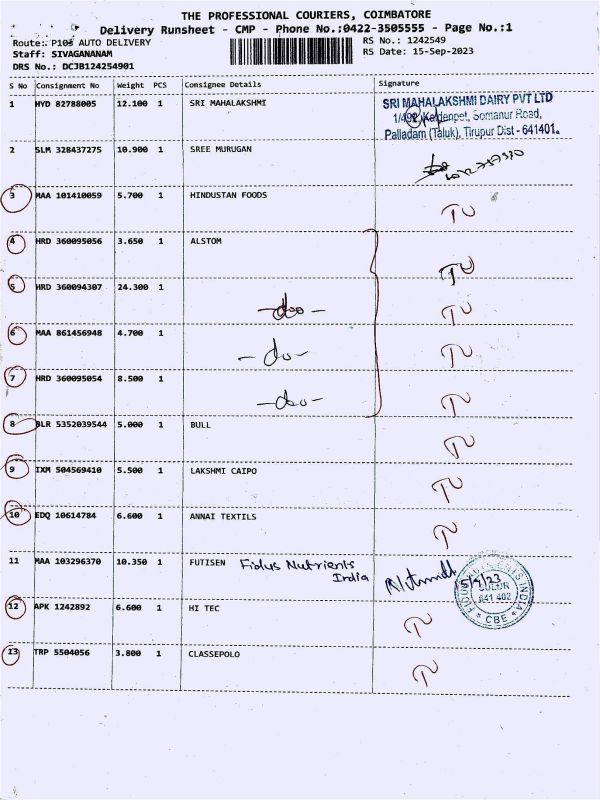 THE PROFESSIONAL COURIERS, COIMBATORE
Delivery Runsheet - CMP - Phone No.:0422-3505555 - Page No.:1
Route: P108 AUTO DELIVERY
RS No.: 1242549
Staff: SIVAGANANAM
RS Date: 15-Sep-2023
DRS No.: DCJB124254901
S No Consignment No Weight PCS Consignee Details Signature
1 HYD 82788005 12.100 1 SRI MAHALAKSHMI
SRI MAHALAKSHMI DAIRY PVT LTD
Somanur Road,
Palladam (Taluk), Tirupur Dist - 641401.
2 SLM 328437275 10.900 1 SREE MURUGAN
3 MAA 101410059 5.700 1 HINDUSTAN FOODS TU
4 HRD 360095056 3.650 1 ALSTOM TU
5 HRD 360094307 24.300 1 -do- TU
6 MAA 861456948 4.700 1 -do- TU
7 HRD 360095054 8.500 1 -do- TU
8 BLR 5352039544 5.000 1 BULL TU
9 IXM 504569410 5.500 1 LAKSHMI CAIPO TU
10 EDQ 10614784 6.600 1 ANNAI TEXTILS TU
11 MAA 103296370 10.350 1 FUTISEN Fidus Nutrients India
15/9/23
SULUR
641 402
* CBE *
12 APK 1242892 6.600 1 HI TEC TU
13 TRP 5504056 3.800 1 CLASSEPOLO TU